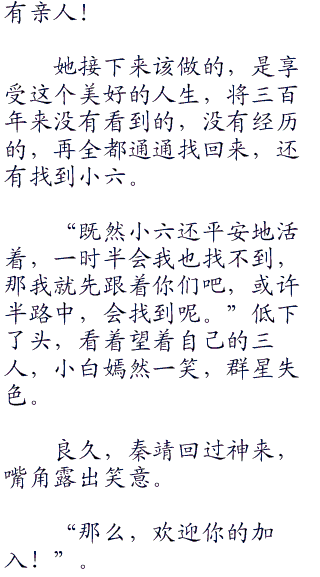 有亲人！
她接下来该做的，是享
受这个美好的人生，将三百
年来没有看到的，没有经历
的，再全都通通找回来，还
有找到小六。
“既然小六还平安地活
着，一时半会我也找不到，
那我就先跟着你们吧，或许
半路中，会找到呢。”低下
了头，看着望着自己的三
人，小白嫣然一笑，群星失
色。
良久，秦靖回过神来，
嘴角露出笑意。
“那么，欢迎你的加
入！”。